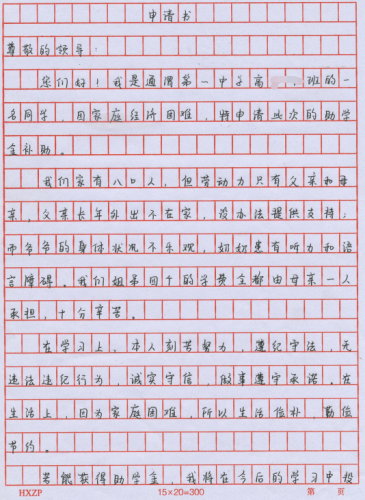 申请书
尊敬的领导:
您们好!我是通渭第一中学高 班的一
名同学,因家庭经济困难,特申请此次的助学
金补助。
我们家有八口人,但劳动力只有父亲和母
亲,父亲长年外出不在家,没办法提供支持;
而爷爷的身体状况不乐观,奶奶患有听力和语
言障碍。我们姐弟四个的学费全都由母亲一人
承担,十分辛苦。
在学习上,本人刻苦努力,遵纪守法,无
违法违纪行为,诚实守信,做事遵守承诺。在
生活上,因为家庭困难,所以生活俭朴,勤俭
节约。
若能获得助学金,我将在今后的学习中投
HXZP 15×20=300 第 页